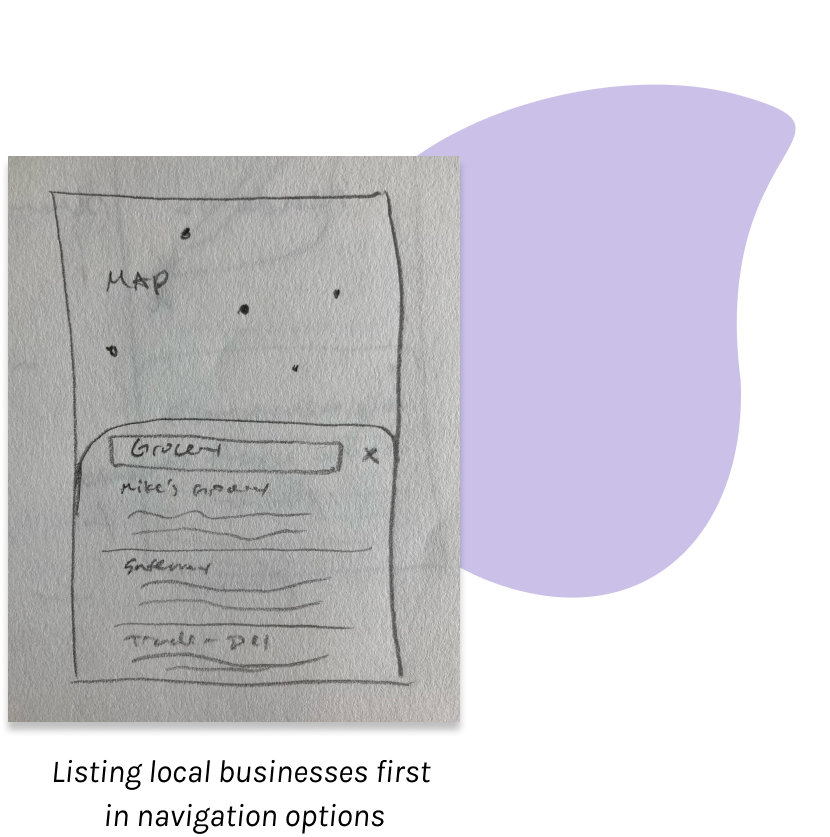 MAP
Grocery
x
Mike's Grocery
Safeway
Listing local businesses first
in navigation options